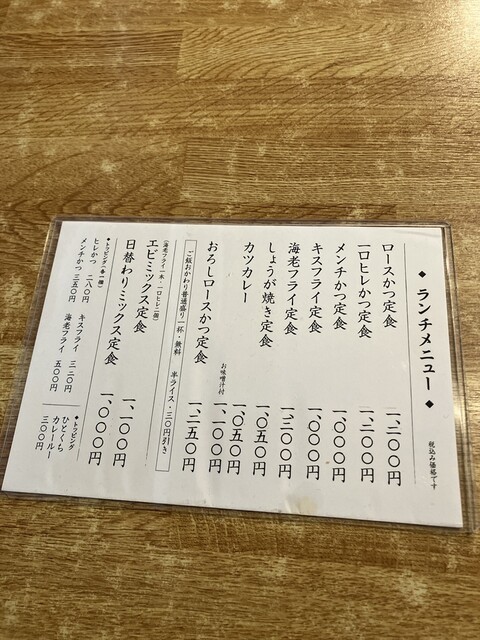 ◆ ランチメニュー ◆
税込み価格です
ロースかつ定食 一、二〇〇円
一口ヒレかつ定食 一、二〇〇円
メンチかつ定食 一、〇〇〇円
キスフライ定食 一、〇〇〇円
海老フライ定食 一、三〇〇円
しょうが焼き定食 一、〇五〇円
カツカレー 一、〇五〇円
お味噌汁付 一、一〇〇円
おろしロースかつ定食 一、二五〇円
ご飯おかわり普通盛り一杯・無料 半ライス・三〇円引き
エビミックス定食 一、一〇〇円
(海老フライ一本・一口ヒレ二個)
日替わりミックス定食 一、〇〇〇円
◆トッピング(各一個)
ヒレかつ 二八〇円 キスフライ 三二〇円
メンチかつ 三五〇円 海老フライ 五〇〇円
◆トッピング
ひとくち
カレールー
三〇〇円